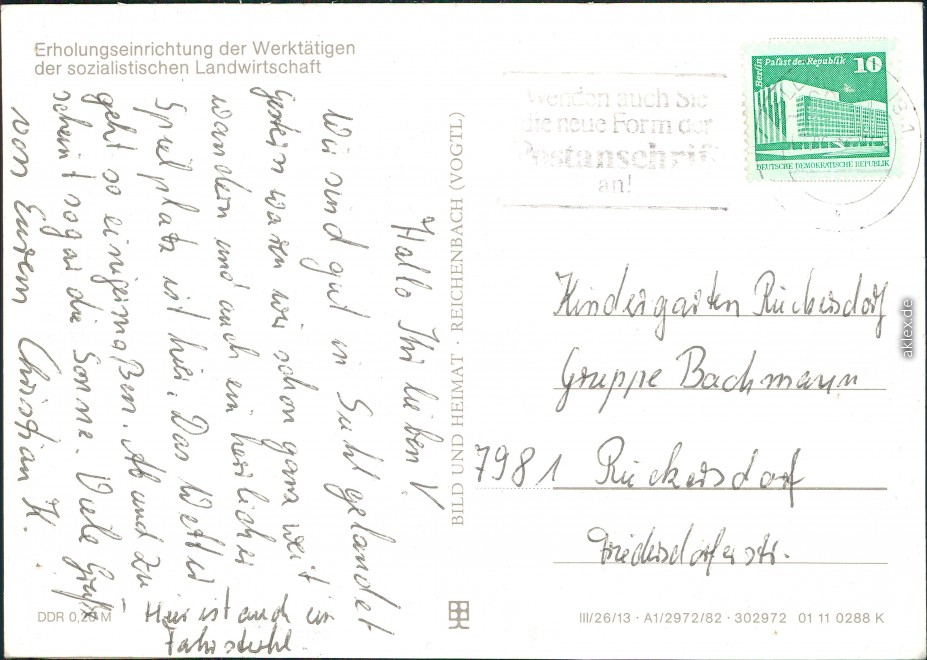 Erholungseinrichtung der Werktätigen
der sozialistischen Landwirtschaft
Hallo Ihr lieben!
Wir sind gut in Suhl gelandet
Gestern waren wir schon ganz weit
wandern und auch ein herrlicher
Spielplatz ist hier. Das Wetter
geht so einigermaßen. Ab und zu
scheint sogar die Sonne. Viele Grüße
von Eurem Christian H.
Hier ist auch ein
Fahrstuhl.
DDR 0,20 M
BILD UND HEIMAT · REICHENBACH (VOGTL)
Wenden auch Sie
die neue Form der
Postanschrift
an!
Berlin Palast der Republik 10
DEUTSCHE DEMOKRATISCHE REPUBLIK
Kindergarten Rückersdorf
Gruppe Bachmann
7981 Rückersdorf
Friedersdorferstr.
III/26/13 · A1/2972/82 · 302972 01 11 0288 K
aklex.de